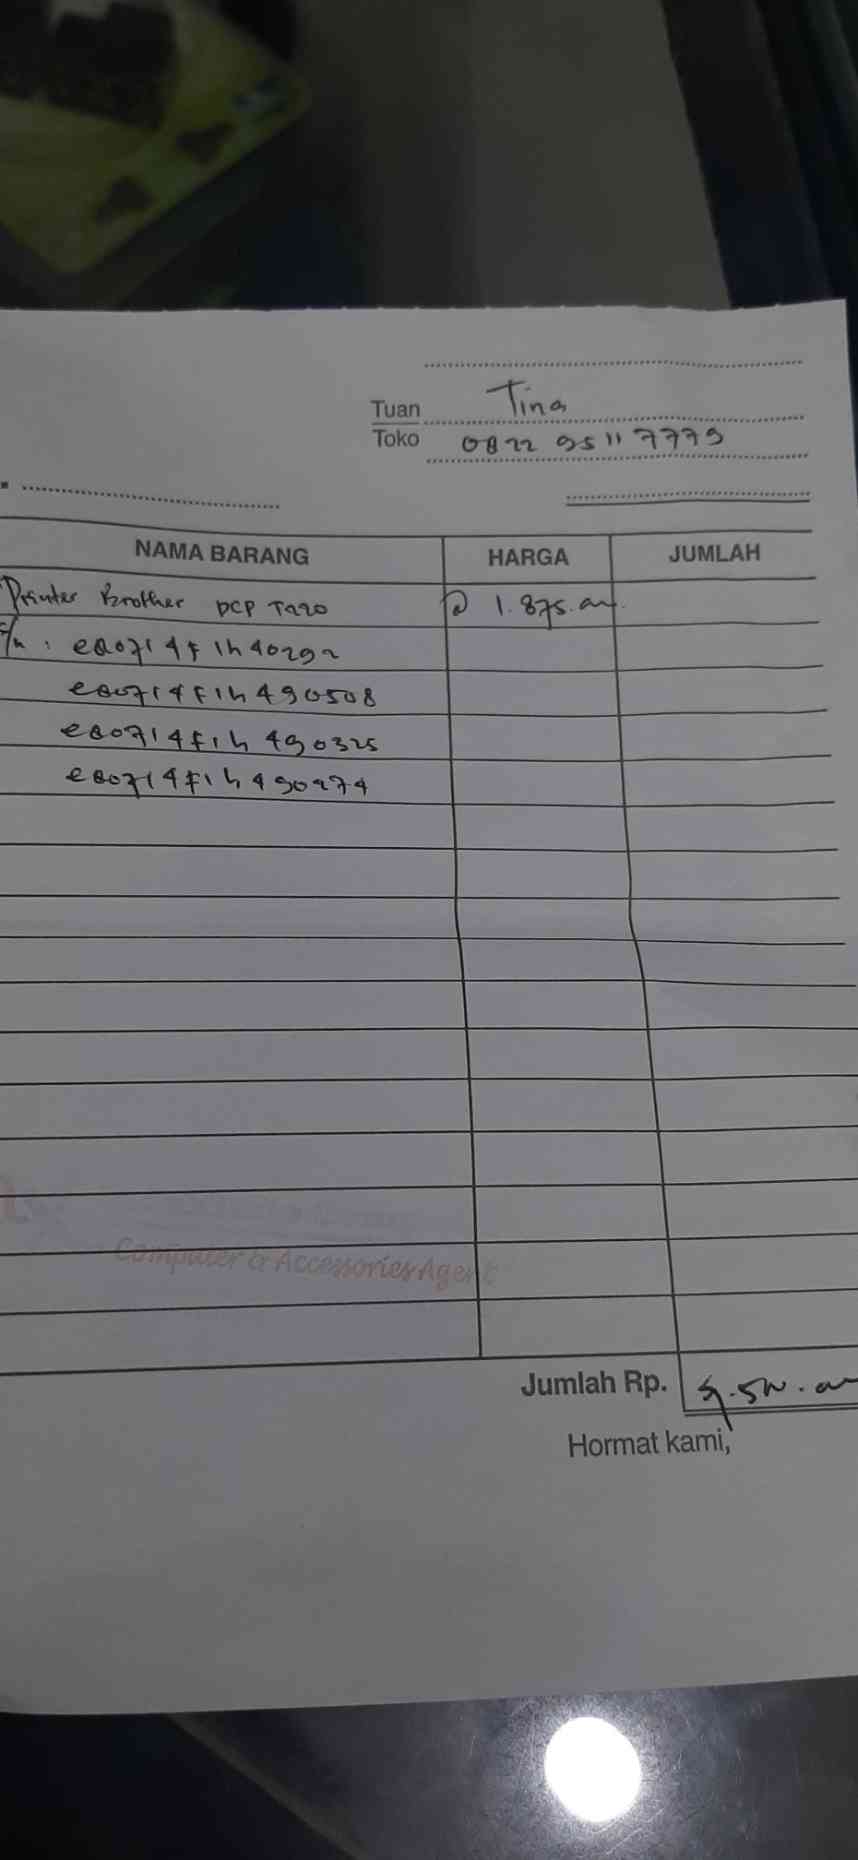 Tuan Tina
Toko 0822 9511 7779
NAMA BARANG HARGA JUMLAH
Printer Brother DCP T220 @ 1.875.000
S/n : e80714f1h40292
e80714f1h490508
e80714f1h490325
e80714f1h490274
Computer & Accessories Agent
Jumlah Rp. 9.500.000
Hormat kami,